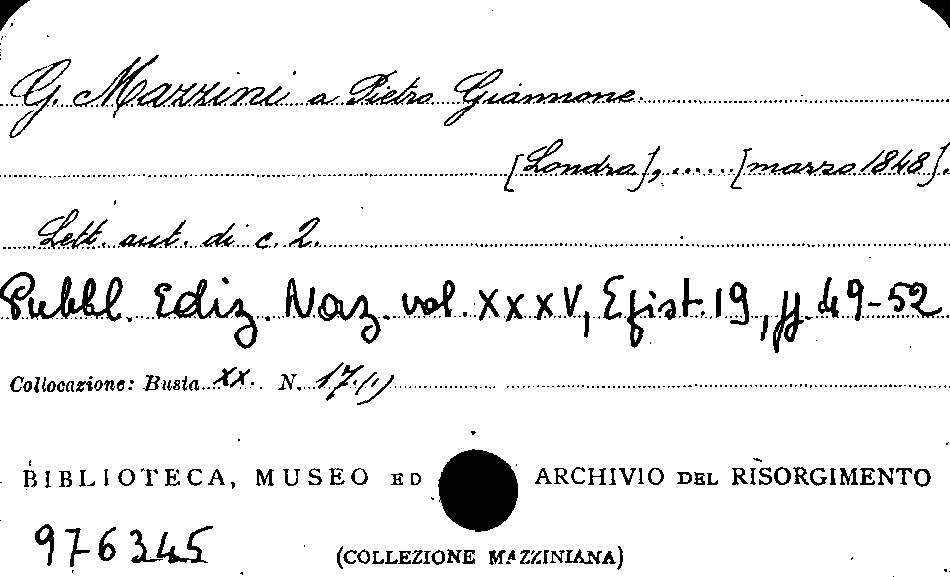 G. Mazzini a Pietro Giannone.
[Londra], ...... [marzo 1848].
Lett. aut. di c. 2.
Pubbl. Ediz. Naz. vol. XXXV, Epist. 19, pp. 49-52
Collocazione: Busta XX. N. 17.(1)
BIBLIOTECA, MUSEO ED ARCHIVIO DEL RISORGIMENTO
976345
(COLLEZIONE MAZZINIANA)